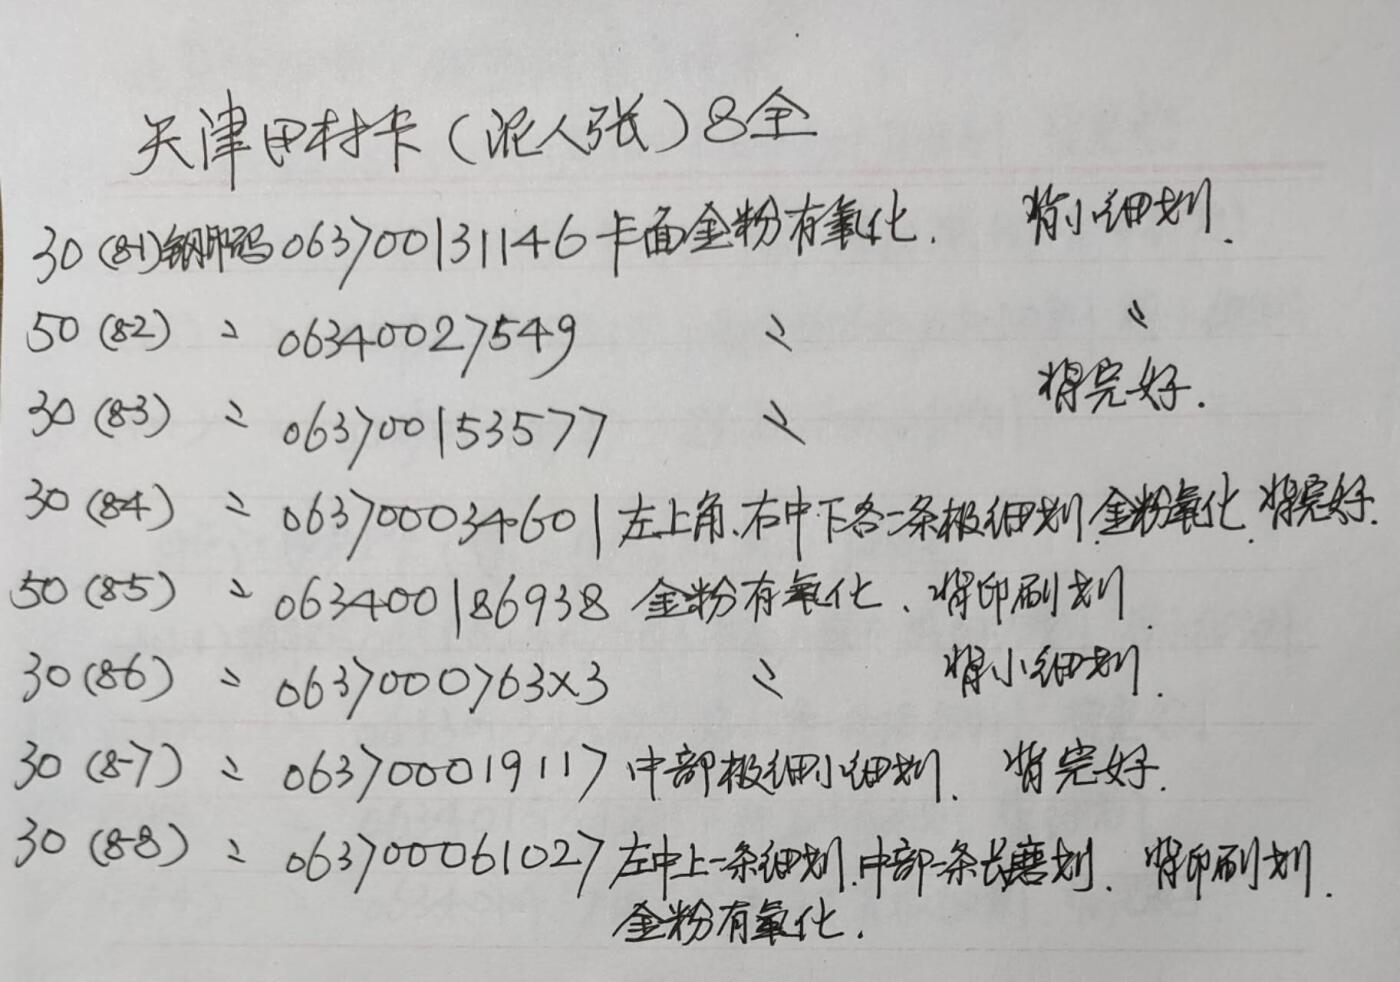 天津田村卡（泥人张）8全
30(8-1)钢印码063700131146卡面金粉有氧化. 背小细划.
50(8-2) 〃 06340027549 〃 〃
30(8-3) 〃 063700153577 〃 背完好.
30(8-4) 〃 063700034601左上角、右中下各一条极细划.金粉氧化.背完好.
50(8-5) 〃 063400186938 金粉有氧化、背印刷划.
30(8-6) 〃 0637000763x3 〃 背小细划.
30(8-7) 〃 063700019117中部极细小细划. 背完好.
30(8-8) 〃 063700061027左中上一条细划.中部一条长磨划. 背印刷划.
金粉有氧化.